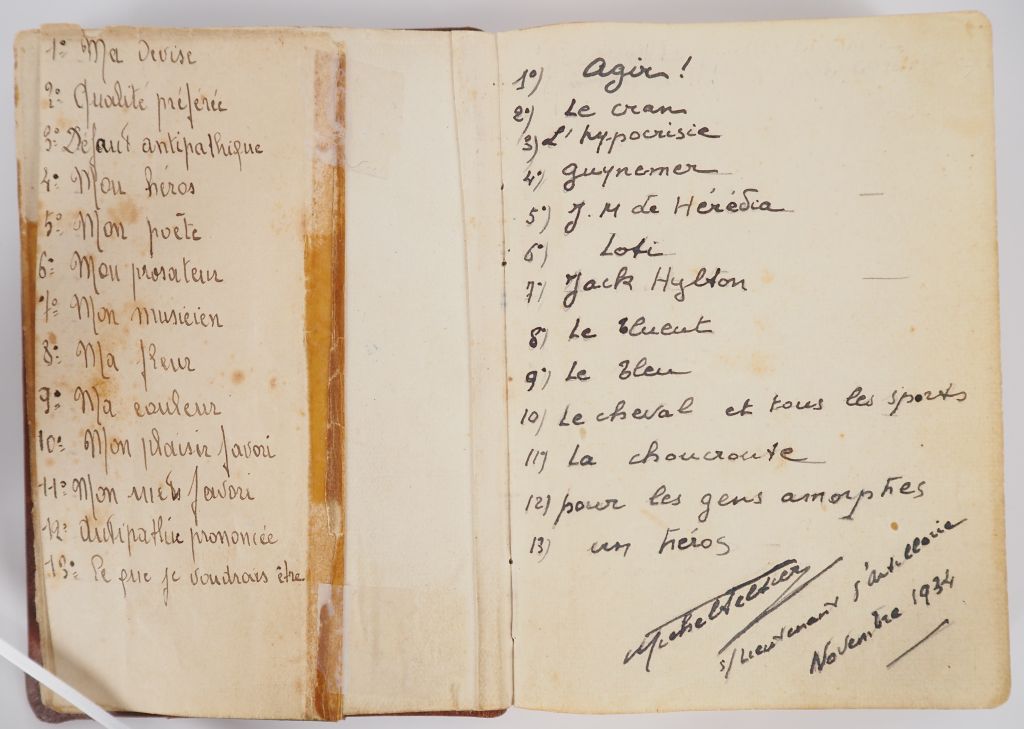 1º Ma devise
2º Qualité préférée
3º Défaut antipathique
4º Mon héros
5º Mon poète
6º Mon prosateur
7º Mon musicien
8º Ma fleur
9º Ma couleur
10º Mon plaisir favori
11º Mon mets favori
12º Antipathie prononcée
13º Ce que je voudrais être
1º) Agir !
2º) Le cran
3) L'hypocrisie
4º) Guynemer
5º) J. M de Hérédia
6º) Loti
7º) Jack Hylton
8º) Le Bluet
9º) Le Bleu
10) Le cheval et tous les sports
11) La choucroute
12) pour les gens amorphes
13) un héros
Michel
s/Lieutenant d'artillerie
Novembre 1934